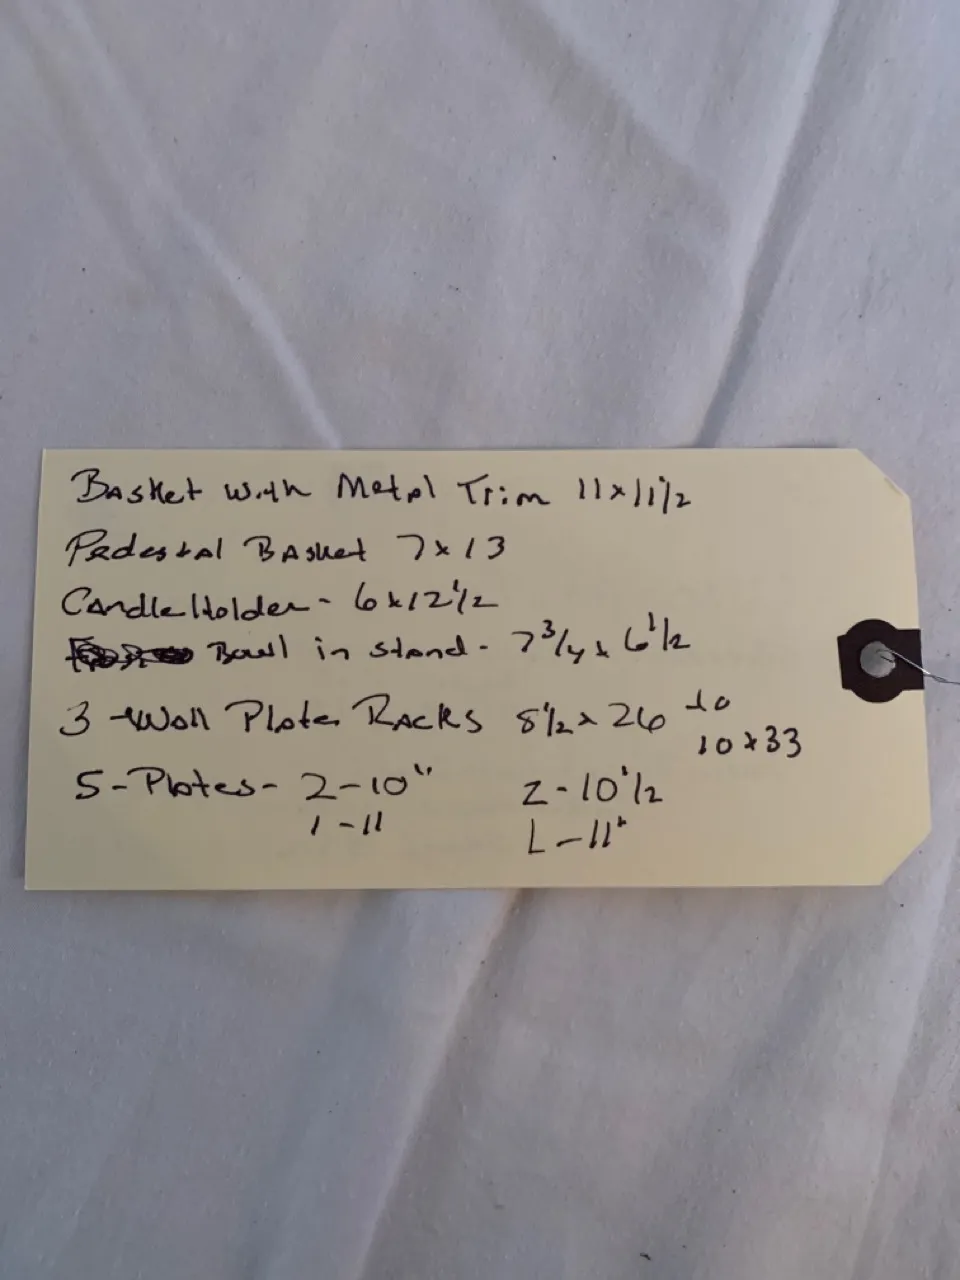 Basket with Metal Trim 11x11 1/2
Pedestal Basket 7x13
Candle Holder - 6x12 1/2
Bowl in stand - 7 3/4 x 6 1/2
3 - Wall Plate Racks 8 1/2 x 26 to
10x33
5 - Plates - 2 - 10" 2 - 10 1/2
1 - 11 1 - 11"